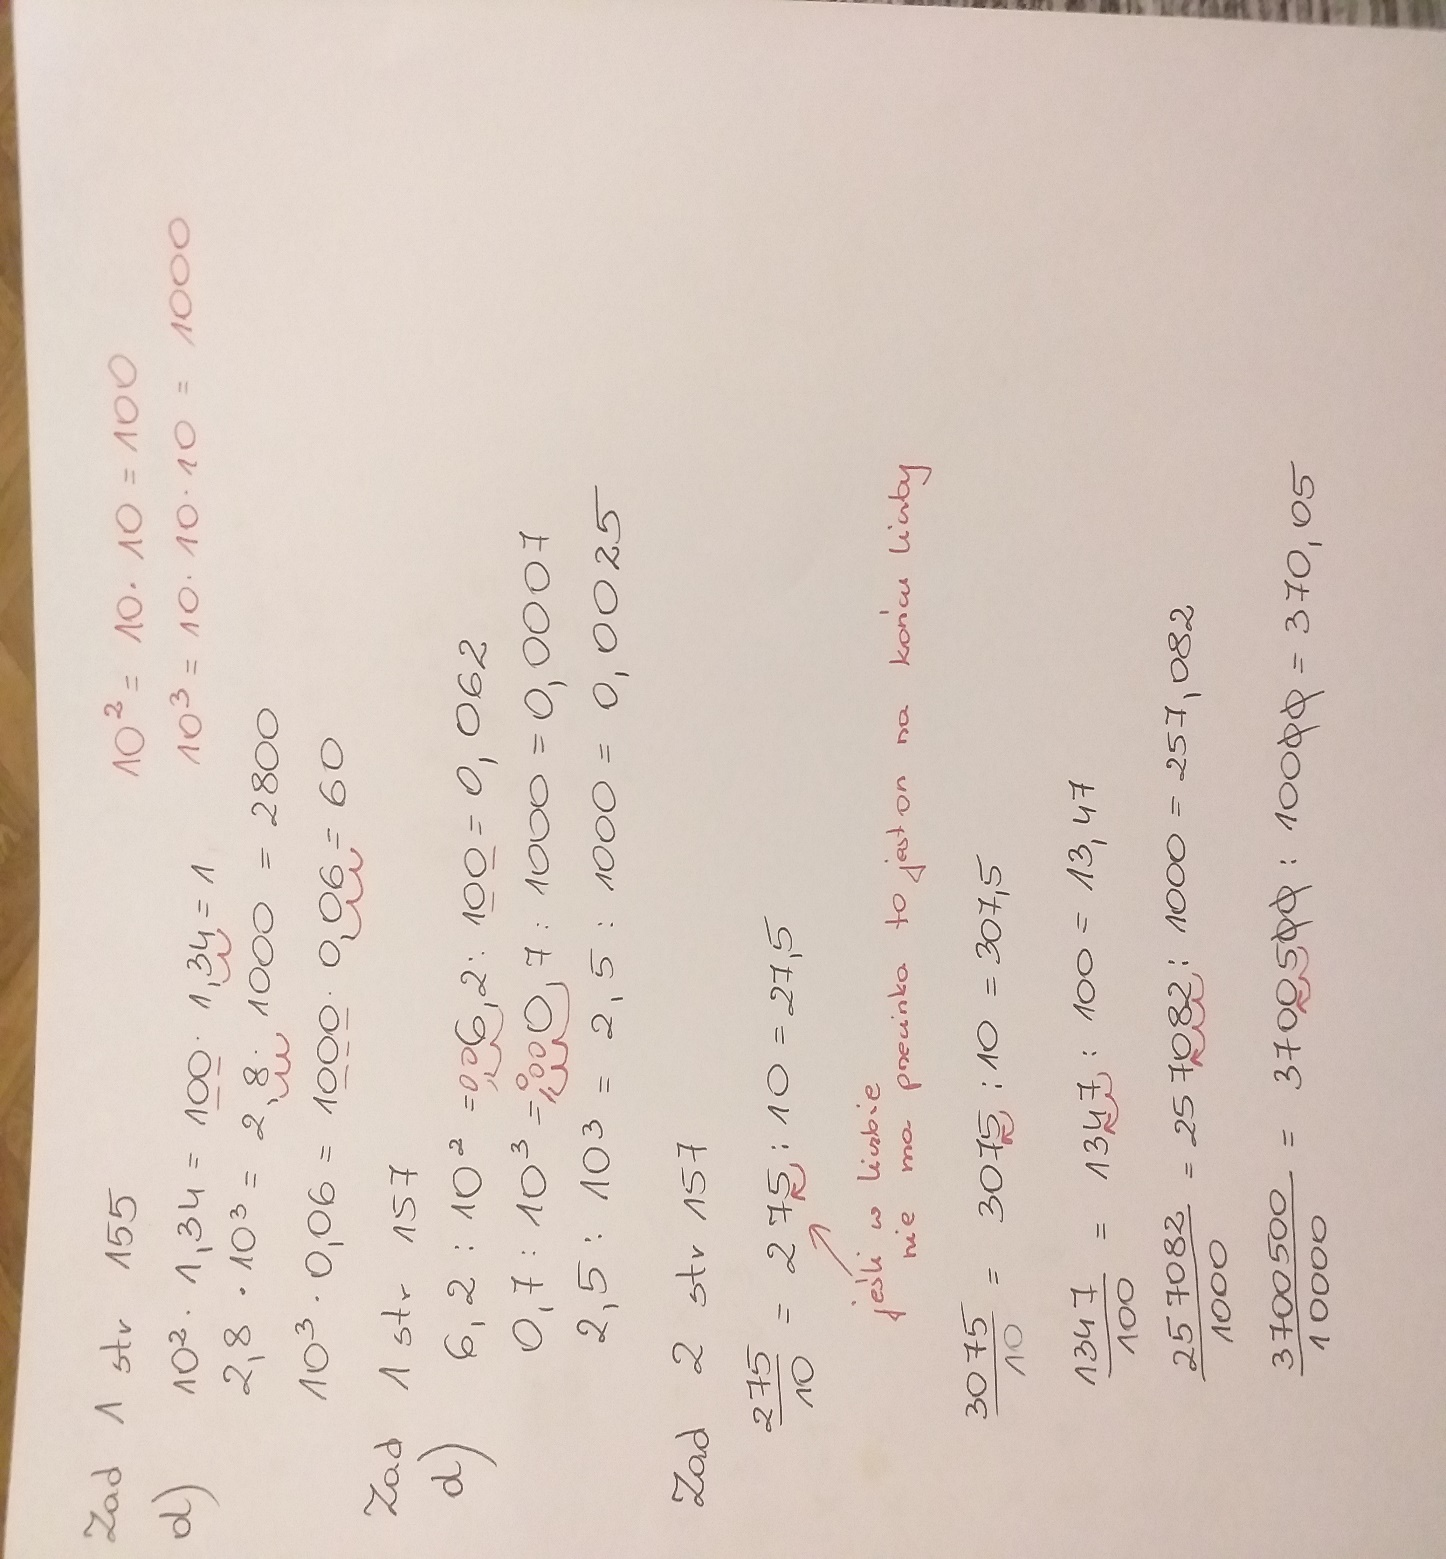 Zad 1 str 155
d)
10² = 10 · 10 = 100
10² · 1,34 = 100 · 1,34 = 1
10³ = 10 · 10 · 10 = 1000
2,8 · 10³ = 2,8 · 1000 = 2800
10³ · 0,06 = 1000 · 0,06 = 60
Zad 1 str 157
d)
6,2 : 10² = 0,06,2 : 100 = 0,062
0,7 : 10³ = 0,000,7 : 1000 = 0,0007
2,5 : 10³ = 2,5 : 1000 = 0,0025
Zad 2 str 157
275/10 = 275 : 10 = 27,5
jeśli w liczbie
nie ma przecinka to jest on na końcu liczby
3075/10 = 3075 : 10 = 307,5
1347/100 = 1347 : 100 = 13,47
257082/1000 = 257082 : 1000 = 257,082
3700500/10000 = 3700500 : 10000 = 370,05